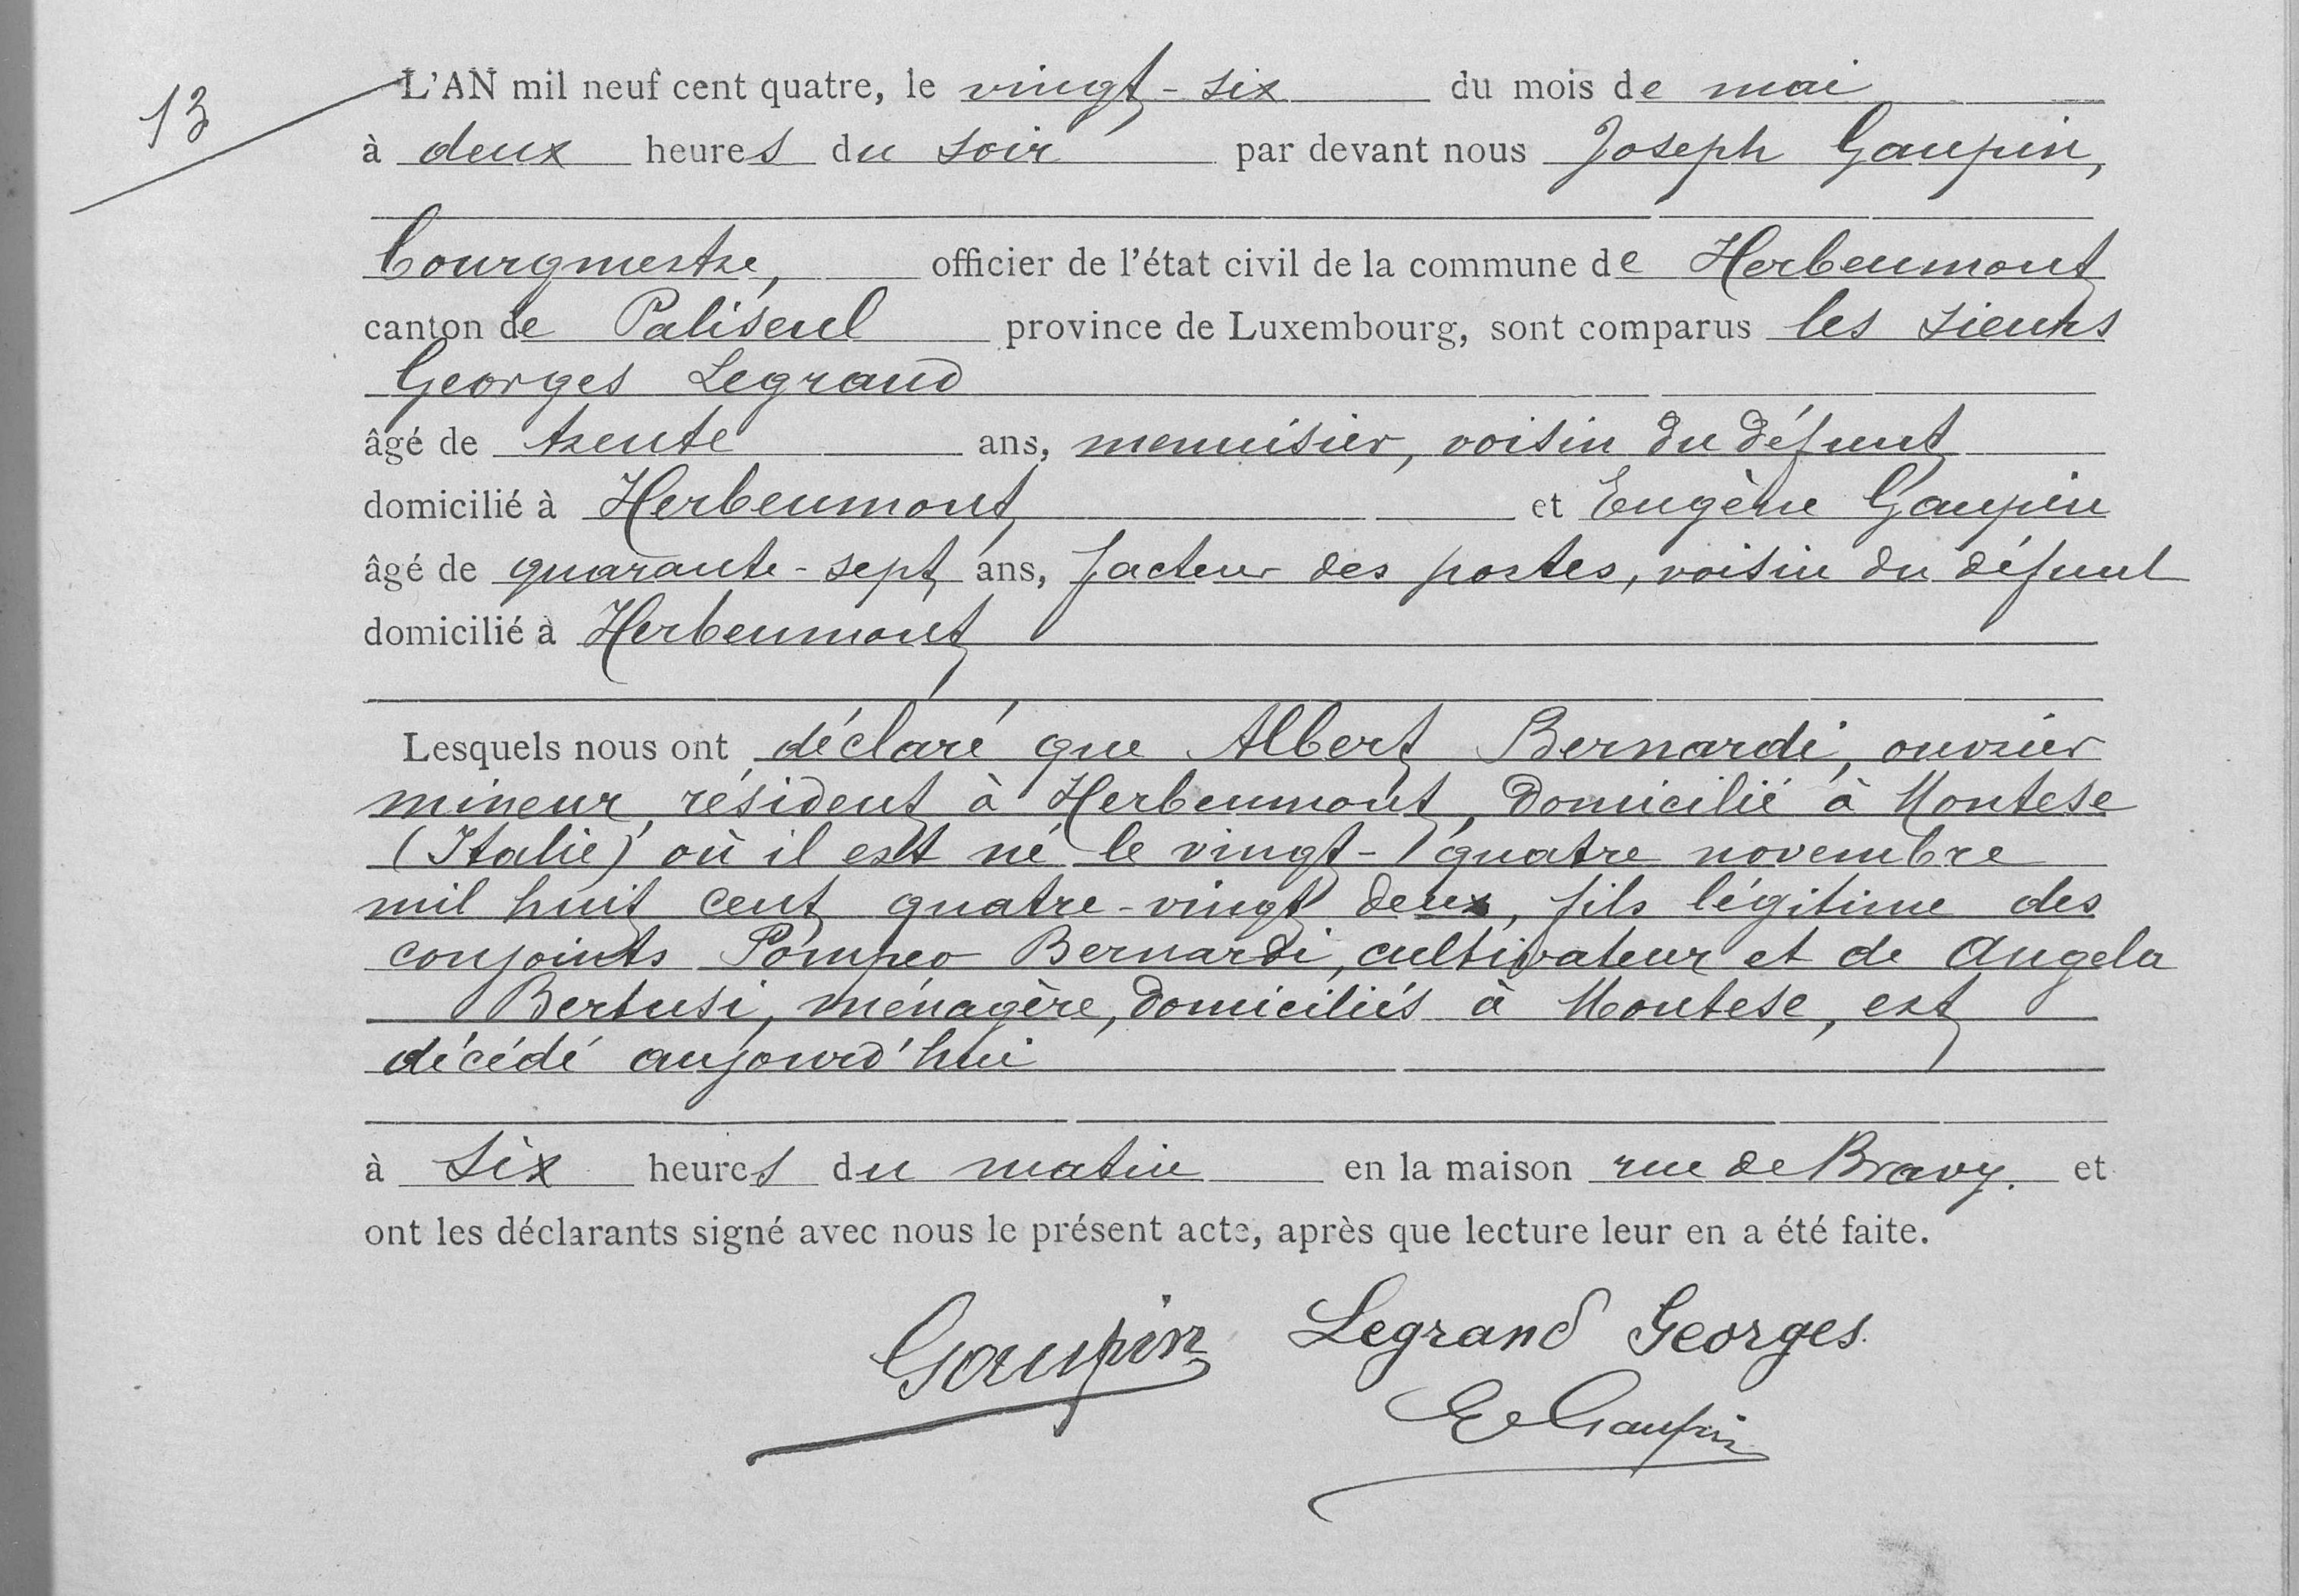 13
L'AN mil neuf cent quatre, le vingt-six du mois de mai
à deux heures du soir par devant nous Joseph Gaupin,
bourgmestre, officier de l'état civil de la commune de Herbeumont
canton de Paliseul province de Luxembourg, sont comparus les sieurs
Georges Legrand
âgé de trente ans, menuisier, voisin du défunt
domicilié à Herbeumont et Eugène Gaupin
âgé de quarante-sept ans, facteur des postes, voisin du défunt
domicilié à Herbeumont
Lesquels nous ont déclaré que Albert Bernardi, ouvrier
mineur, résident à Herbeumont, domicilié à Montese
(Italie) où il est né le vingt-quatre novembre
mil huit cent quatre-vingt deux, fils légitime des
conjoints Pompeo Bernardi, cultivateur et de Angela
Bertusi, ménagère, domiciliés à Montese, est
décédé aujourd'hui
à six heures du matin en la maison rue de Bravy. et
ont les déclarants signé avec nous le présent acte, après que lecture leur en a été faite.
Gaupin Legrand Georges.
E Gaupin